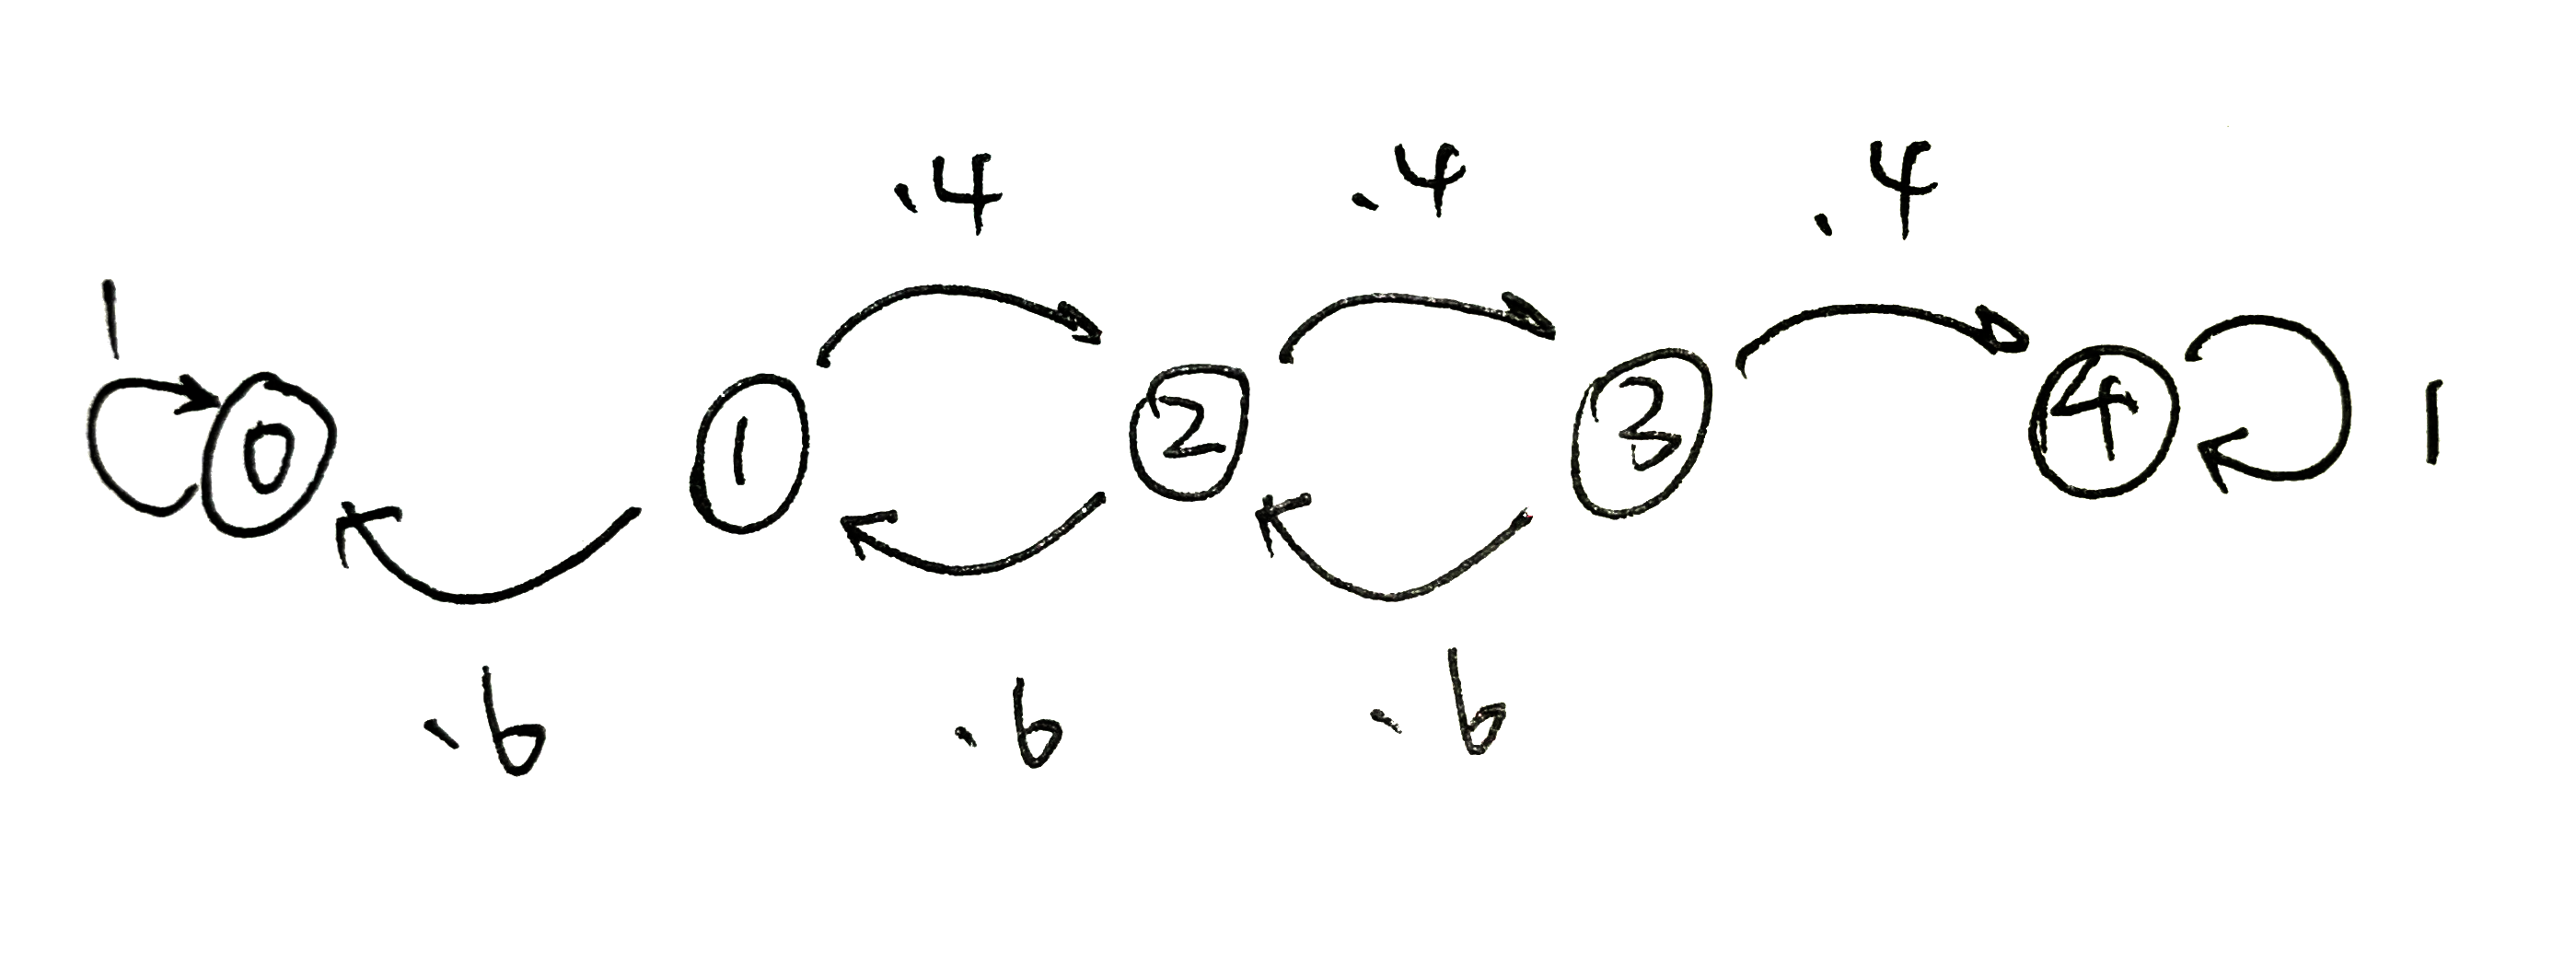 .4 .4 .4
1
0 1 2 3 4 1
.6 .6 .6